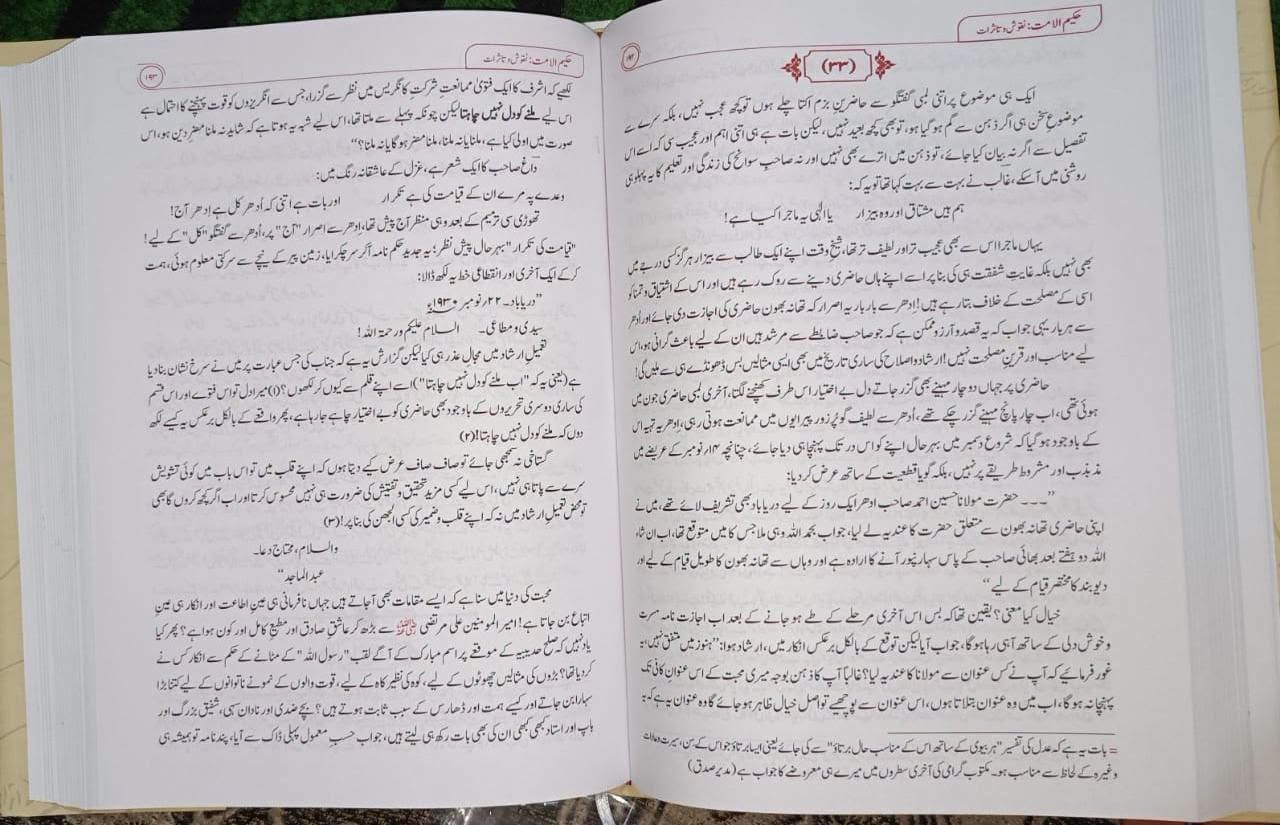 حکیم الامت: نقوش وتاثرات
۱۹۲
(۳۳)
ایک ہی موضوع پر اتنی لمبی گفتگو سے حاضرینِ بزم اکتا چلے ہوں تو کچھ عجب نہیں، بلکہ سرے سے
موضوعِ سخن ہی اگر ذہن سے گم ہو گیا ہو، تو بھی کچھ بعید نہیں، لیکن بات ہے ہی اتنی اہم اور عجیب سی کہ اسے اس
تفصیل سے اگر نہ بیان کیا جائے، تو ذہن میں اترے بھی نہیں اور نہ صاحبِ سوانح کی زندگی اور تعلیم کا یہ پہلو ہی
روشنی میں آسکے، غالب نے بہت سے بہت کہا تھا تو یہ کہ:
ہم ہیں مشتاق اور وہ بیزار یا الٰہی یہ ماجرا کیا ہے!
یہاں ماجرا اس سے بھی عجیب تر اور لطیف تر تھا، شیخِ وقت اپنے ایک طالب سے بیزار ہرگز کسی درجے میں
بھی نہیں بلکہ غایتِ شفقت ہی کی بنا پر اسے اپنے ہاں حاضری دینے سے روک رہے ہیں اور اس کے اشتیاق و تمنا کو
اسی کے مصلحت کے خلاف بتا رہے ہیں! اِدھر سے بار بار یہ اصرار کہ تھانہ بھون حاضری کی اجازت دی جائے اور اُدھر
سے ہر بار یہی جواب کہ یہ قصد و آرزو ممکن ہے کہ جو صاحب ضابطے سے مرشد ہیں ان کے لیے باعثِ گرانی ہو، اس
لیے مناسب اور قرینِ مصلحت نہیں! ارشاد و اصلاح کی ساری تاریخ میں بھی ایسی مثالیں بس ڈھونڈے ہی سے ملیں گی!
حاضری پر جہاں دو چار مہینے بھی گزر جاتے دل بے اختیار اس طرف کھنچنے لگتا، آخری لمبی حاضری جون میں
ہوئی تھی، اب چار پانچ مہینے گزر چکے تھے، اُدھر سے لطیف گو پُر زور پیرایوں میں ممانعت ہوتی رہی، اِدھر یہ تہیہ اس
کے باوجود ہو گیا کہ شروع دسمبر میں بہرحال اپنے کو اس در تک پہنچا ہی دیا جائے، چنانچہ ۱۴؍نومبر کے عریضے میں
مذبذب اور مشروط طریقے پر نہیں، بلکہ گویا قطعیت کے ساتھ عرض کر دیا:
”۔۔۔ حضرت مولانا حسین احمد صاحب ادھر ایک روز کے لیے دریاباد بھی تشریف لائے تھے، میں نے
اپنی حاضری تھانہ بھون سے متعلق حضرت کا عندیہ لے لیا، جواب بحمد اللہ وہی ملا جس کا میں متوقع تھا، اب ان شاء
اللہ دو ہفتے بعد بھائی صاحب کے پاس سہارنپور آنے کا ارادہ ہے اور وہاں سے تھانہ بھون کا طویل قیام کے لیے اور
دیوبند کا مختصر قیام کے لیے“
خیال کیا معنی؟ یقین تھا کہ بس اس آخری مرحلے کے طے ہو جانے کے بعد اب اجازت نامہ مسرت
و خوش دلی کے ساتھ آ ہی رہا ہوگا، جواب آیا لیکن توقع کے بالکل برعکس انکار میں، ارشاد ہوا: ”ہنوز میں متفق نہیں، یہ
غور فرمایئے کہ آپ نے کس عنوان سے مولانا کا عندیہ لیا؟ غالباً آپ کا ذہن بوجہ میری محبت کے اس عنوانِ کافی تک
پہنچا نہ ہوگا، اب میں وہ عنوان بتلاتا ہوں، اس عنوان سے پوچھیے تو اصل خیال ظاہر ہو جائے گا وہ عنوان یہ ہے کہ یہ
= بات یہ ہے کہ عدل کی تفسیر ”ہر بیوی کے ساتھ اس کے مناسبِ حال برتاؤ“ سے کی جائے یعنی ایسا برتاؤ جو اس کے سن، سیرت و عادات
وغیرہ کے لحاظ سے مناسب ہو۔ مکتوبِ گرامی کی آخری سطروں میں میرے ہی معروضے کا جواب ہے (مدیر صدق)
حکیم الامت: نقوش وتاثرات
۱۹۳
لکھیے کہ اشرف کا ایک فتویٰ ممانعت شرکتِ کانگریس میں نظر سے گزرا، جس سے انگریزوں کو قوت پہنچنے کا احتمال ہے
اس لیے ملنے کو دل نہیں چاہتا لیکن چونکہ پہلے سے ملتا تھا، اس لیے شبہ یہ ہوتا ہے کہ شاید نہ ملنا مضرِ دین ہو، اس
صورت میں اولیٰ کیا ہے، ملنا یا نہ ملنا، ملنا مضر ہو گا یا نہ ملنا؟“
داغ صاحب کا ایک شعر ہے، غزل کے عاشقانہ رنگ میں:
وعدے پہ مرے ان کے قیامت کی ہے تکرار اور بات ہے اتنی کہ اُدھر کل ہے اِدھر آج!
تھوڑی سی ترمیم کے بعد وہی منظر آج پیش تھا، اِدھر سے اصرار ”آج“ پر، اُدھر سے گفتگو ”کل“ کے لیے!
”قیامت کی تکرار“ بہرحال پیشِ نظر؛ یہ جدید حکم نامہ آ کر سر چکرایا، زمین پیر کے نیچے سے سرکتی معلوم ہوئی، ہمت
کر کے ایک آخری اور انقطاعی خط یہ لکھ ڈالا:
”دریاباد۔ ۲۲؍نومبر ۱۹۳۰ء
سیدی و مطاعی۔ السلام علیکم ورحمۃ اللہ!
تعمیلِ ارشاد میں مجالِ عذر ہی کیا لیکن گزارش یہ ہے کہ جناب کی جس عبارت پر میں نے سرخ نشان بنا دیا
ہے (یعنی یہ کہ ”اب ملنے کو دل نہیں چاہتا“) اسے اپنے قلم سے کیوں کر لکھوں؟ (۱) میرا دل تو اس فتوے اور اس قسم
کی ساری دوسری تحریروں کے باوجود بھی حاضری کو بے اختیار چاہے جا رہا ہے، پھر واقعے کے بالکل برعکس یہ کیسے لکھ
دوں کہ ملنے کو دل نہیں چاہتا! (۲)
گستاخی نہ سمجھی جائے تو صاف صاف عرض کیے دیتا ہوں کہ اپنے قلب میں تو اس باب میں کوئی تشویش
سرے سے پاتا ہی نہیں، اس لیے کسی مزید تحقیق و تفتیش کی ضرورت ہی نہیں محسوس کرتا اور اب اگر کچھ کروں گا بھی
تو محض تعمیلِ ارشاد میں نہ کہ اپنے قلب و ضمیر کی کسی الجھن کی بنا پر! (۳)
والسلام، محتاجِ دعا۔
عبد الماجد“
محبت کی دنیا میں سنا ہے کہ ایسے مقامات بھی آ جاتے ہیں جہاں نافرمانی ہی عینِ اطاعت اور انکار ہی عینِ
اتباع بن جاتا ہے! امیر المومنین علی مرتضی سے بڑھ کر عاشقِ صادق اور مطیعِ کامل اور کون ہوا ہے؟ پھر کیا
یاد نہیں کہ صلحِ حدیبیہ کے موقعے پر اسمِ مبارک کے آگے لقب ”رسول اللہ“ کے مٹانے کے حکم سے انکار کس نے
کر دیا تھا؟ بڑوں کی مثالیں چھوٹوں کے لیے، کوہ کی نظیر کاہ کے لیے، قوت والوں کے نمونے ناتوانوں کے لیے کتنا بڑا
سہارا بن جاتے اور کیسے ہمت اور ڈھارس کے سبب ثابت ہوتے ہیں؟ بچے ضدی اور نادان سہی، شفیق بزرگ اور
باپ اور استاد کبھی کبھی ان کی بھی بات رکھ ہی لیتے ہیں، جواب حسبِ معمول پہلی ڈاک سے آیا، پند نامہ تو ہمیشہ ہی